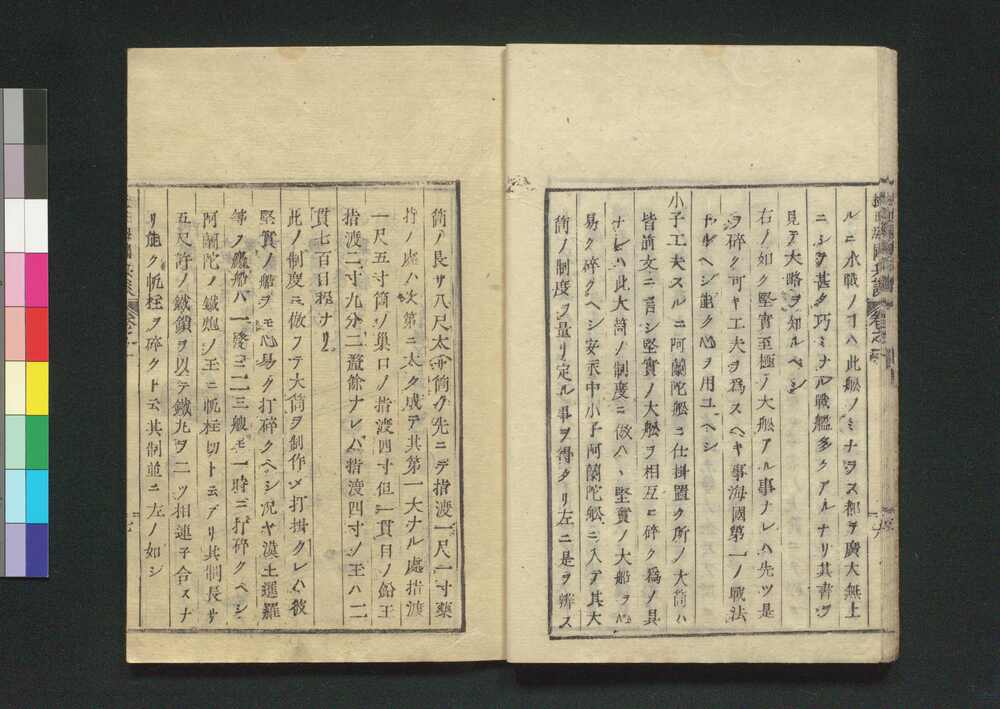 ルニ水戰ノコハ此舩ノミナラス都テ廣大無上
ニシテ甚タ巧ミナル戰艦多クアルナリ其書ヲ
見テ大略ヲ知ルベシ
右ノ如ク堅實至極ノ大舩アル事ナレハ先ツ是
ヲ碎ク可キ工夫ヲ爲スヘキ事海國第一ノ戰法
トルヘシ能ク心ヲ用ユヘシ
小子工夫スルニ阿蘭陀舩ニ仕掛置ク所ノ大筒ハ
皆前文ニ言シ堅實ノ大舩ヲ相互ニ碎ク爲ノ具
ナレハ此大筒ノ制度ニ倣ハヽ堅實ノ大船ヲモ
易ク碎クヘシ安永中小子阿蘭陀舩ニ入テ其大
筒ノ制度ヲ量リ定ル事ヲ得タリ左ニ是ヲ辨ス
筒ノ長サ八尺太サ筒ノ先ニテ指渡一尺一寸藥
持ノ處ハ次第ニ太ク成テ其第一大ナル處指渡
一尺五寸筒ノ巣口ノ指渡四寸但一貫目ノ鉛玉
指渡二寸九分二釐餘ナレバ指渡四寸ノ玉ハ二
貫七百目程ナリ
此ノ制度ニ倣フテ大筒ヲ制作メ打掛クレハ彼
堅實ノ船ヲモ心易ク打碎クヘシ況ヤ漢土暹羅
等ノ麁船ハ一發ニ二三艘モ一時ニ打碎クベシ
阿蘭陀ノ鐵炮ノ玉ニ帆柱切ト云アリ其制長サ
五尺許ノ鐵鎖ヲ以テ鐵丸ヲ二ツ相連子合スナ
リ能ク帆柱ヲ碎クト云其制並ニ左ノ如シ